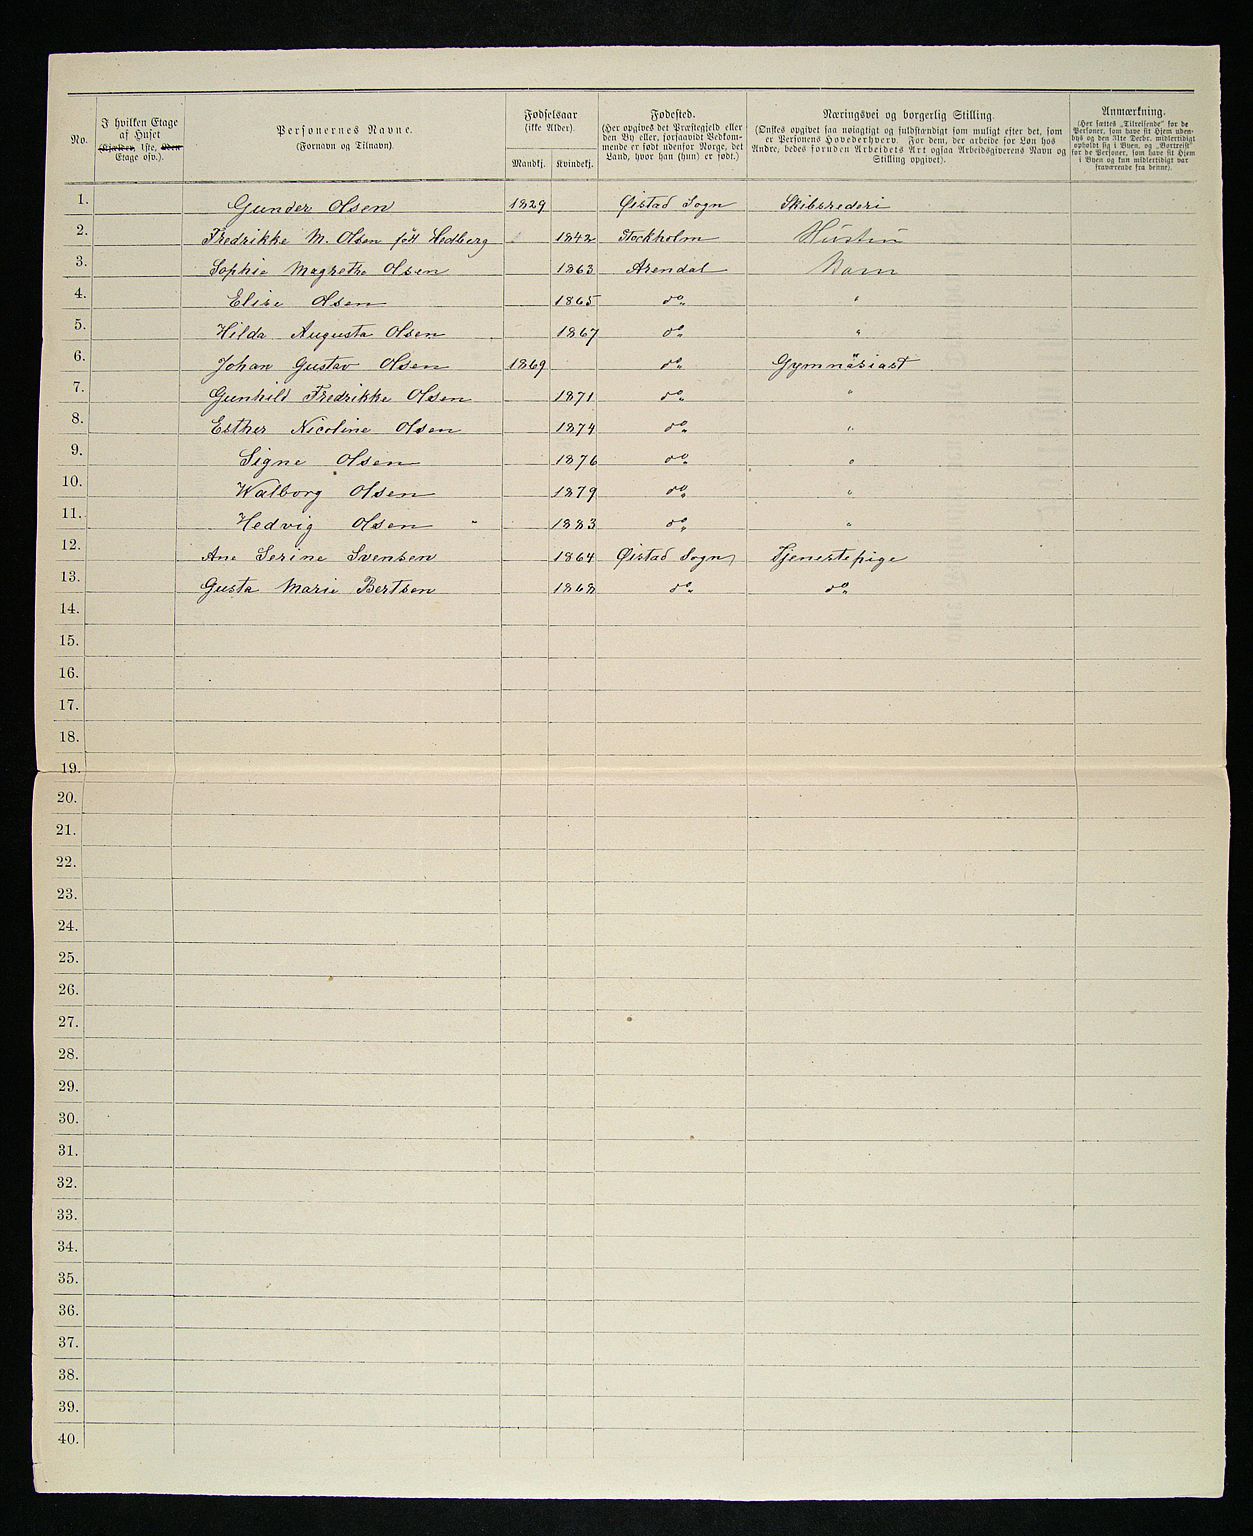 No.
I hvilken Etage af Huset (Kjælder, 1ste, 2den Etage osv.).
Personernes Navne.
(Fornavn og Tilnavn).
Fødselsaar
(ikke Alder).
Mandkj. Kvindekj.
Fødested.
(Her opgives det Præstegjeld eller
den By eller, forsaavidt Vedkom-
mende er født udenfor Norge, det
Land, hvor han (hun) er født.)
Næringsvei og borgerlig Stilling.
(Ønskes opgivet saa nøiagtigt og fuldstændigt som muligt efter det, som
er Personens Hovederhverv. For dem, der arbeide for Løn hos
Andre, bedes foruden Arbeidets Art ogsaa Arbeidsgiverens Navn og
Stilling opgivet).
Anmærkning.
(Her sættes „Tilreisende" for de
Personer, som have sit Hjem uden-
bys og den 31te Decbr. midlertidigt
opholdt sig i Byen, og „Bortreist"
for de Personer, som have sit Hjem
i Byen og kun midlertidigt var
fraværende fra denne).
1. Gunder Olsen 1829 Øistad Sogn Skibsrederi
2. Fredrikke M. Olsen föd Hedberg 1842 Stockholm Hustru
3. Sophie Magrethe Olsen 1863 Arendal Barn
4. Elise Olsen 1865 do „
5. Hilda Augusta Olsen 1867 do „
6. Johan Gustav Olsen 1869 do Gymnasiast
7. Gunhild Fredrikke Olsen 1871 do „
8. Esther Nicoline Olsen 1874 do „
9. Signe Olsen 1876 do „
10. Walborg Olsen 1879 do „
11. Hedvig Olsen 1883 do „
12. Ane Serine Svensen 1864 Øistad Sogn Tjenestepige
13. Gusta Marie Bertsen 1868 do do
14.
15.
16.
17.
18.
19.
20.
21.
22.
23.
24.
25.
26.
27.
28.
29.
30.
31.
32.
33.
34.
35.
36.
37.
38.
39.
40.